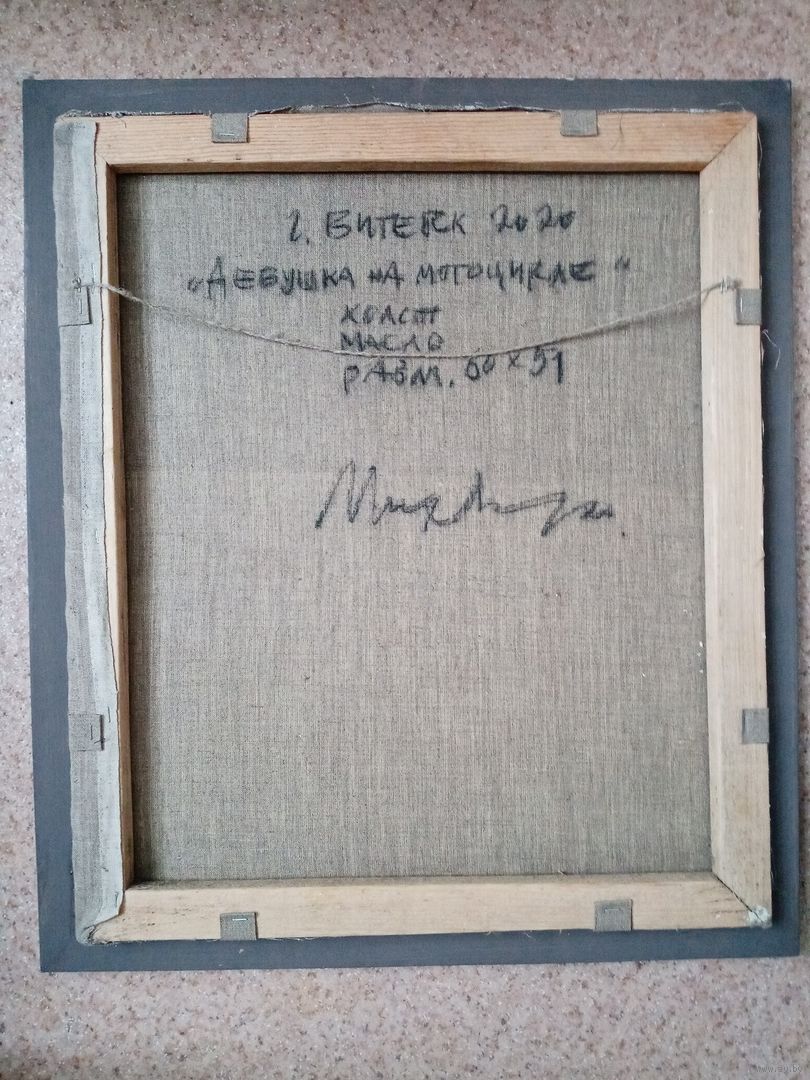 г. ВИТЕБСК 2020
„ДЕВУШКА НА МОТОЦИКЛЕ"
ХОЛСТ
МАСЛО
РАЗМ. 60 х 51
www.ay.by